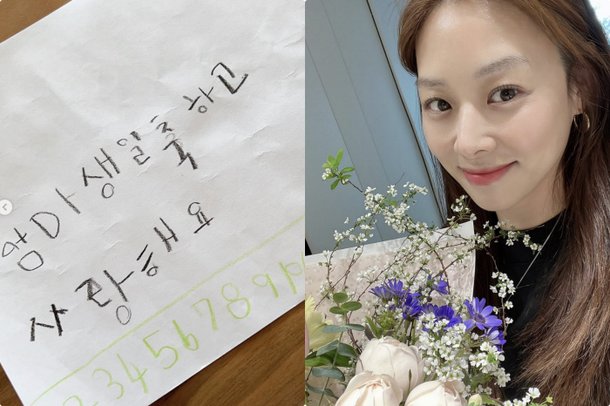 엄마생일축하고
사랑해요
23456789